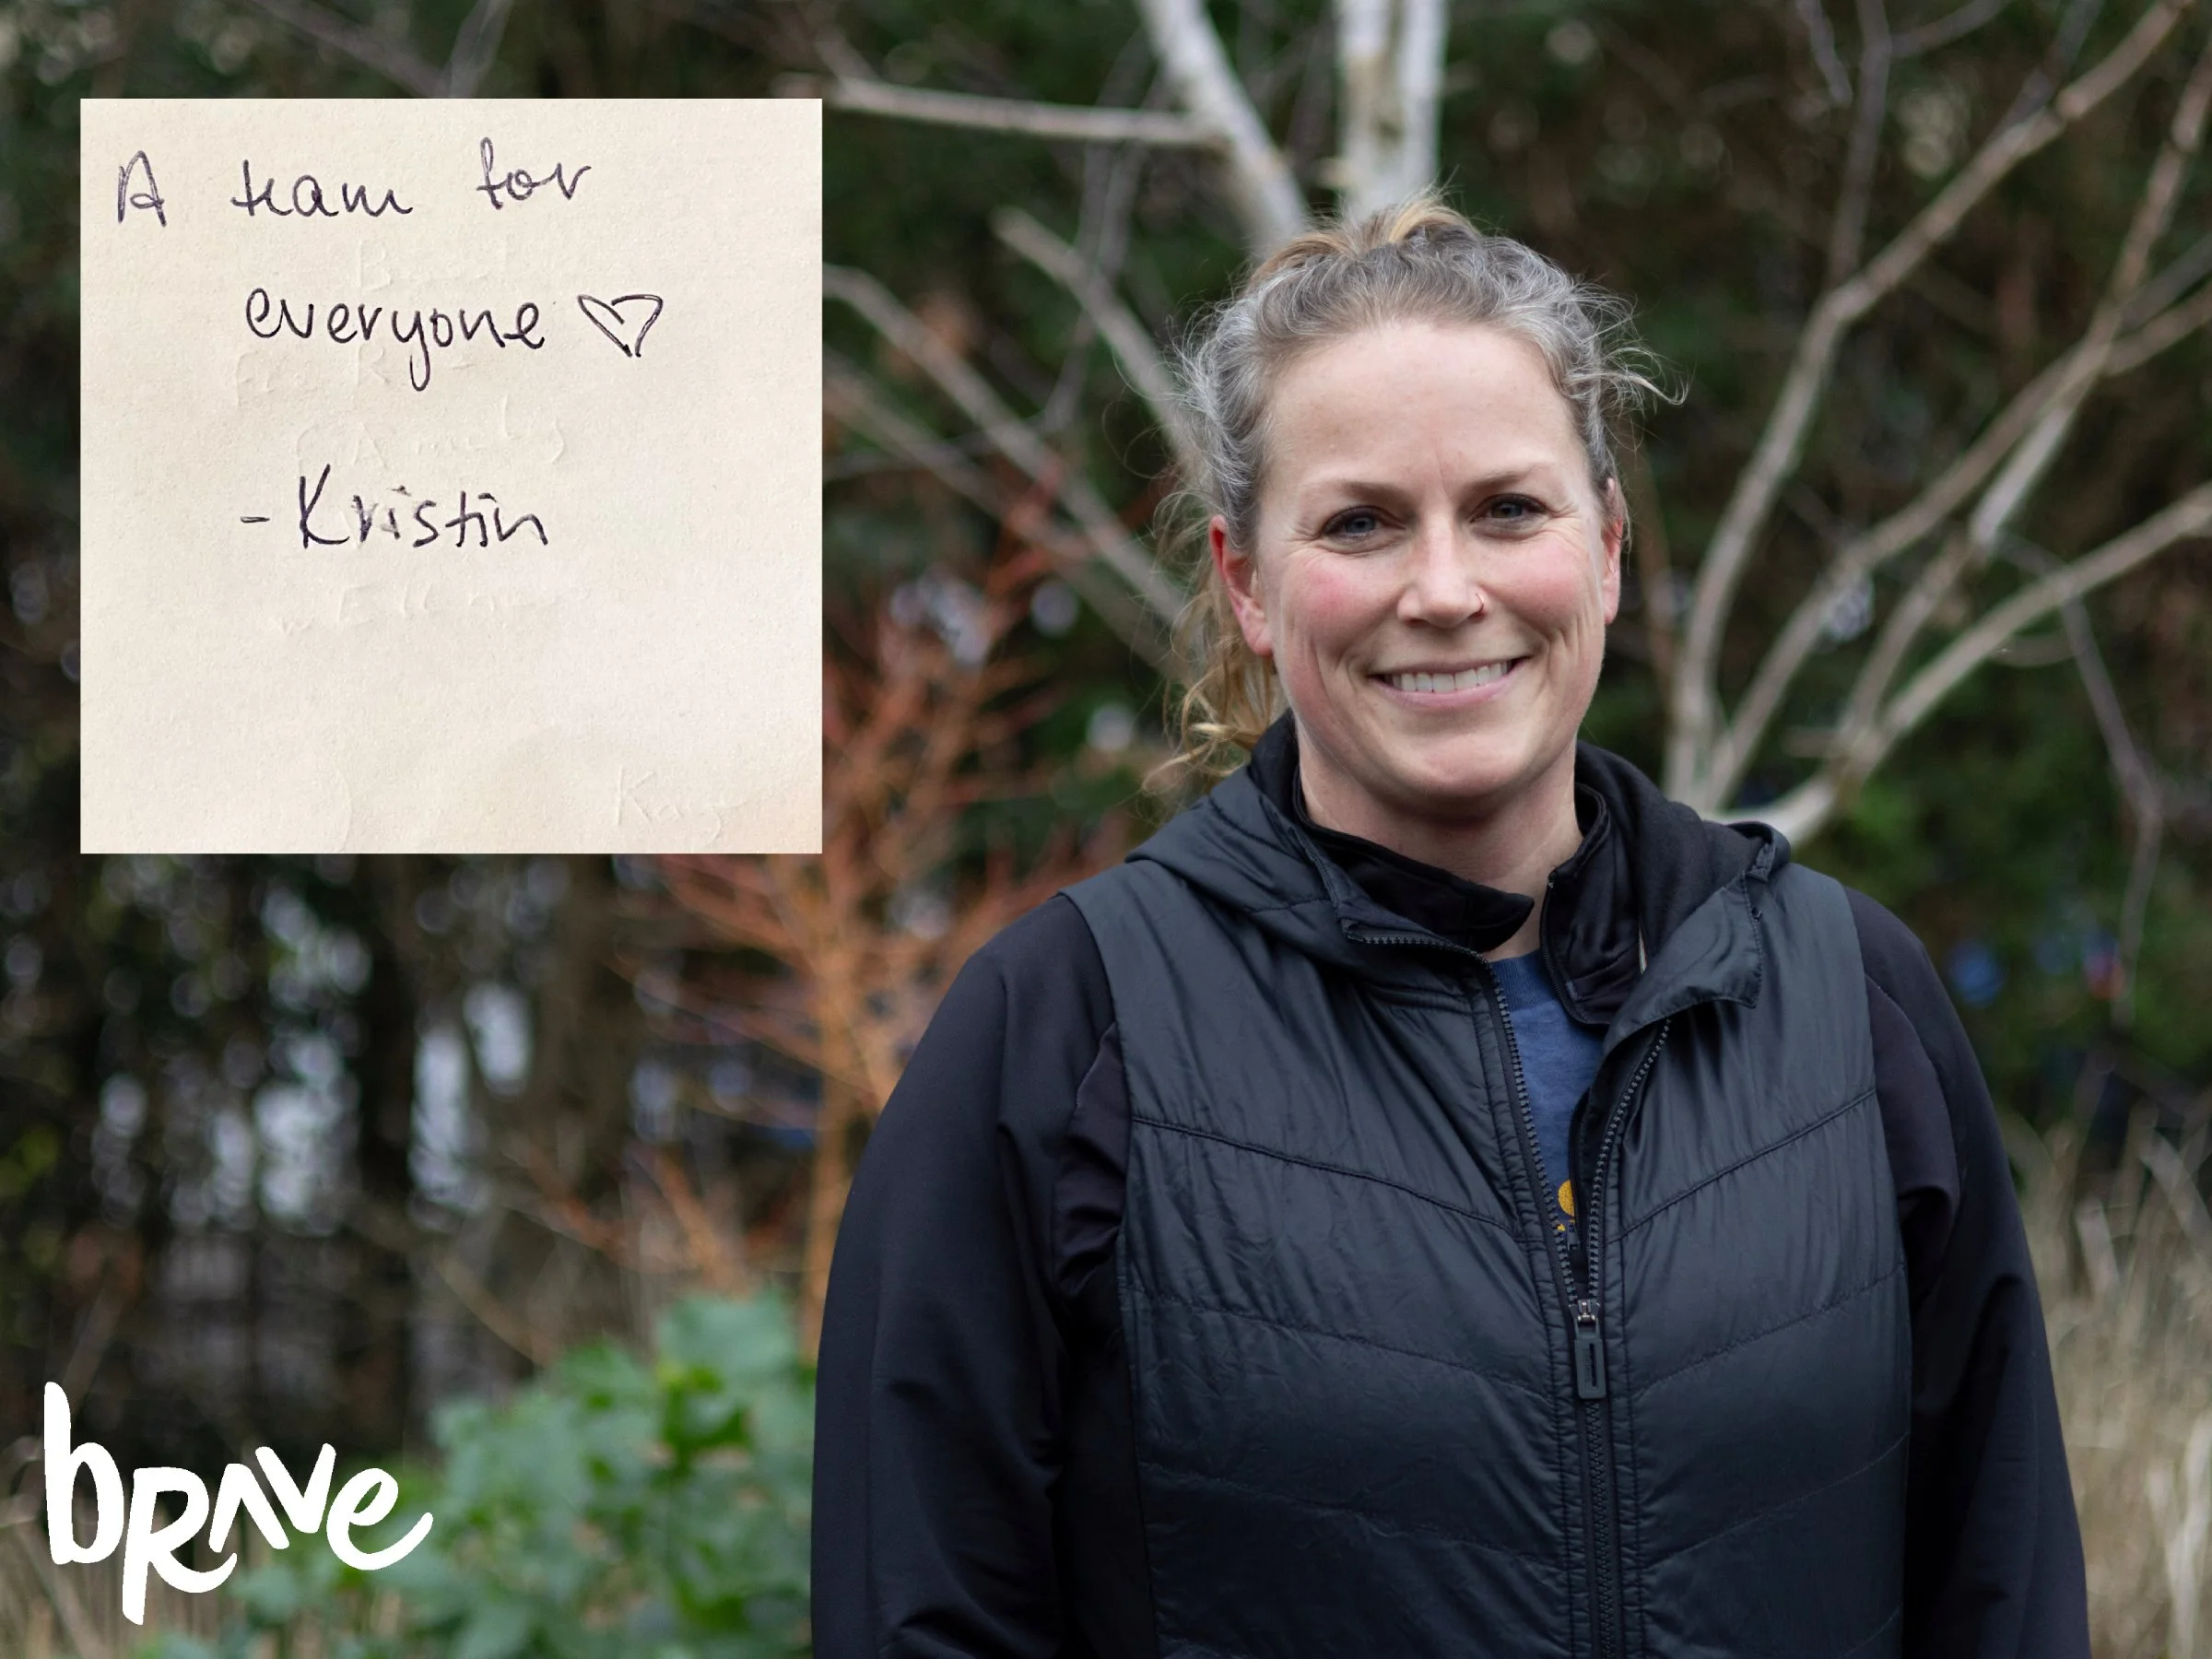 A team for
everyone ♡
- Kristin
brave